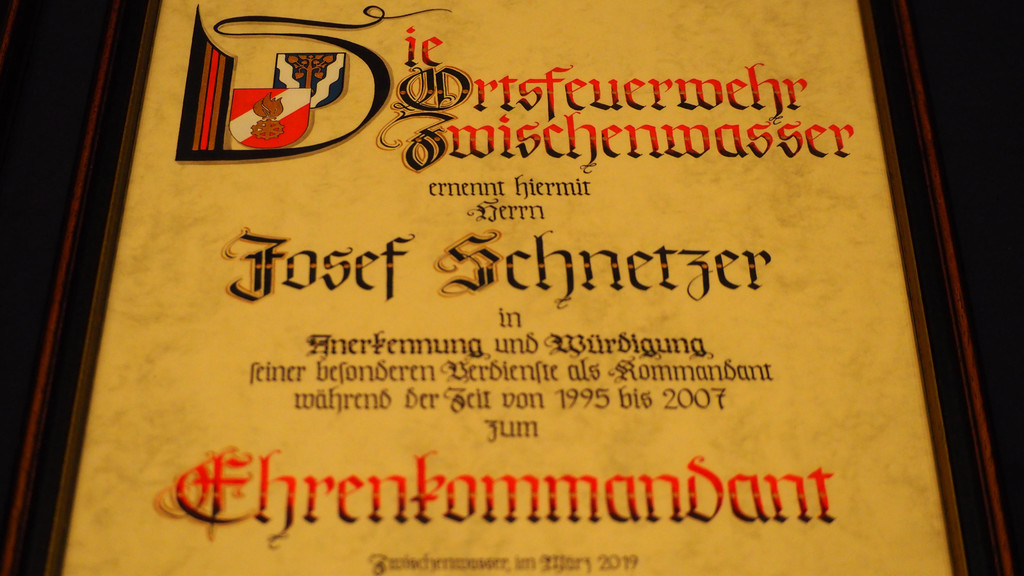 Die
Ortsfeuerwehr
Zwischenwasser
ernennt hiermit
Herrn
Josef Schnetzer
in
Anerkennung und Würdigung
seiner besonderen Verdienste als Kommandant
während der Zeit von 1995 bis 2007
zum
Ehrenkommandant
Zwischenwasser, im März 2019